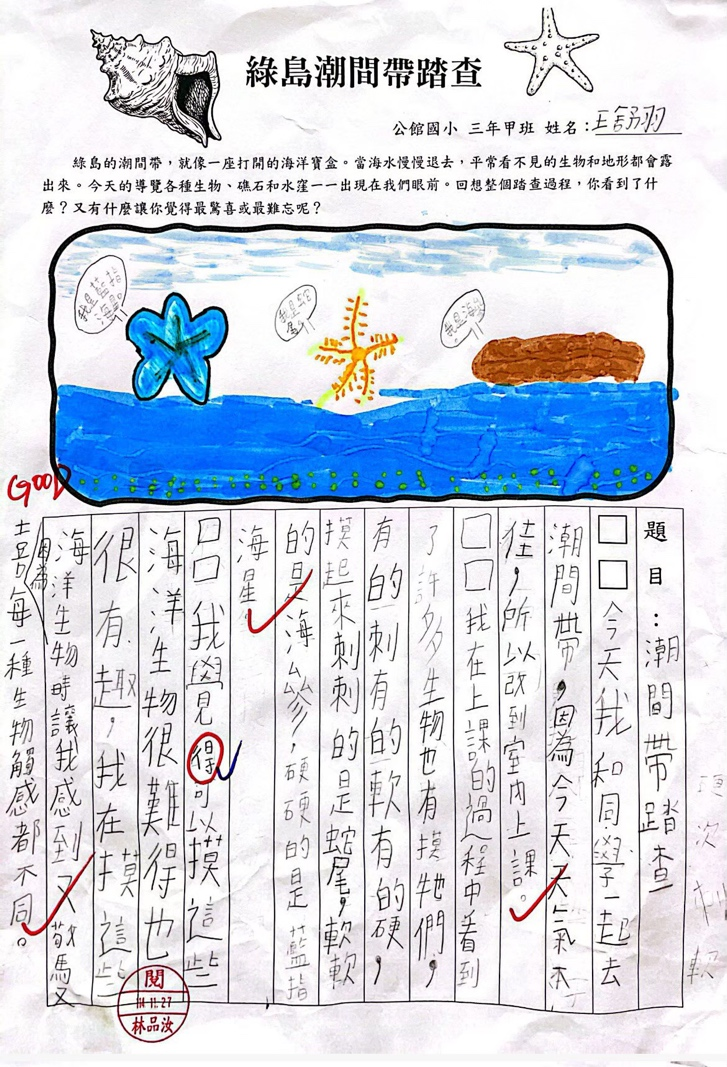 綠島潮間帶踏查
公館國小 三年甲班 姓名:王舒羽
綠島的潮間帶,就像一座打開的海洋寶盒。當海水慢慢退去,平常看不見的生物和地形都會露
出來。今天的導覽各種生物、礁石和水窪一一出現在我們眼前。回想整個踏查過程,你看到了什
麼?又有什麼讓你覺得最驚喜或最難忘呢?
我是藍指海星
我是蛇尾
我是海參
GOOD
題目:潮間帶踏查
□□今天我和同學一起去
潮間帶,因為今天天氣不
佳,所以改到室內上課。
□□我在上課的過程中看到
了許多生物也有摸牠們,
有的刺有的軟有的硬,
摸起來刺刺的是蛇尾,軟軟
的是海參,硬硬的是藍指
海星。
□□我覺得可以摸這些
海洋生物很難得也
很有趣,我在摸這些
海洋生物時讓我感到又驚又
喜,因為每一種生物觸感都不同。
硬次刺軟
閱
114.11.27
林品汝